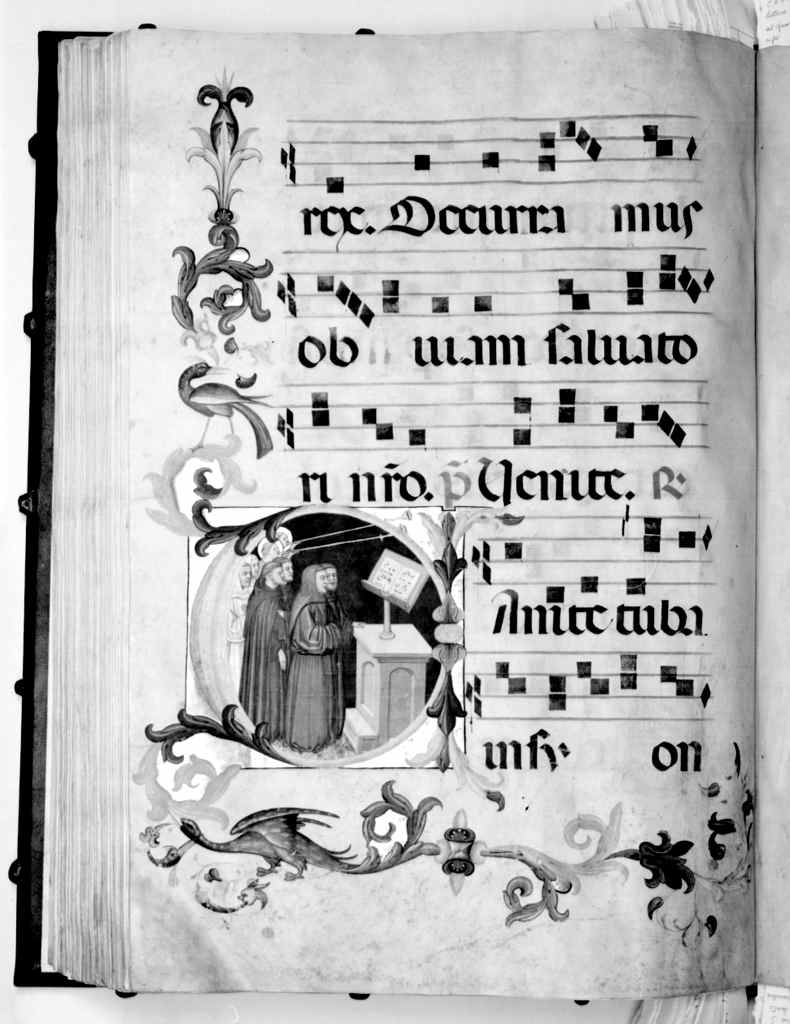 rex. Occurra mus
ob uiam saluato
ri nr̃o. p̃ Uenite. ℟
CAnite tuba
in sy on